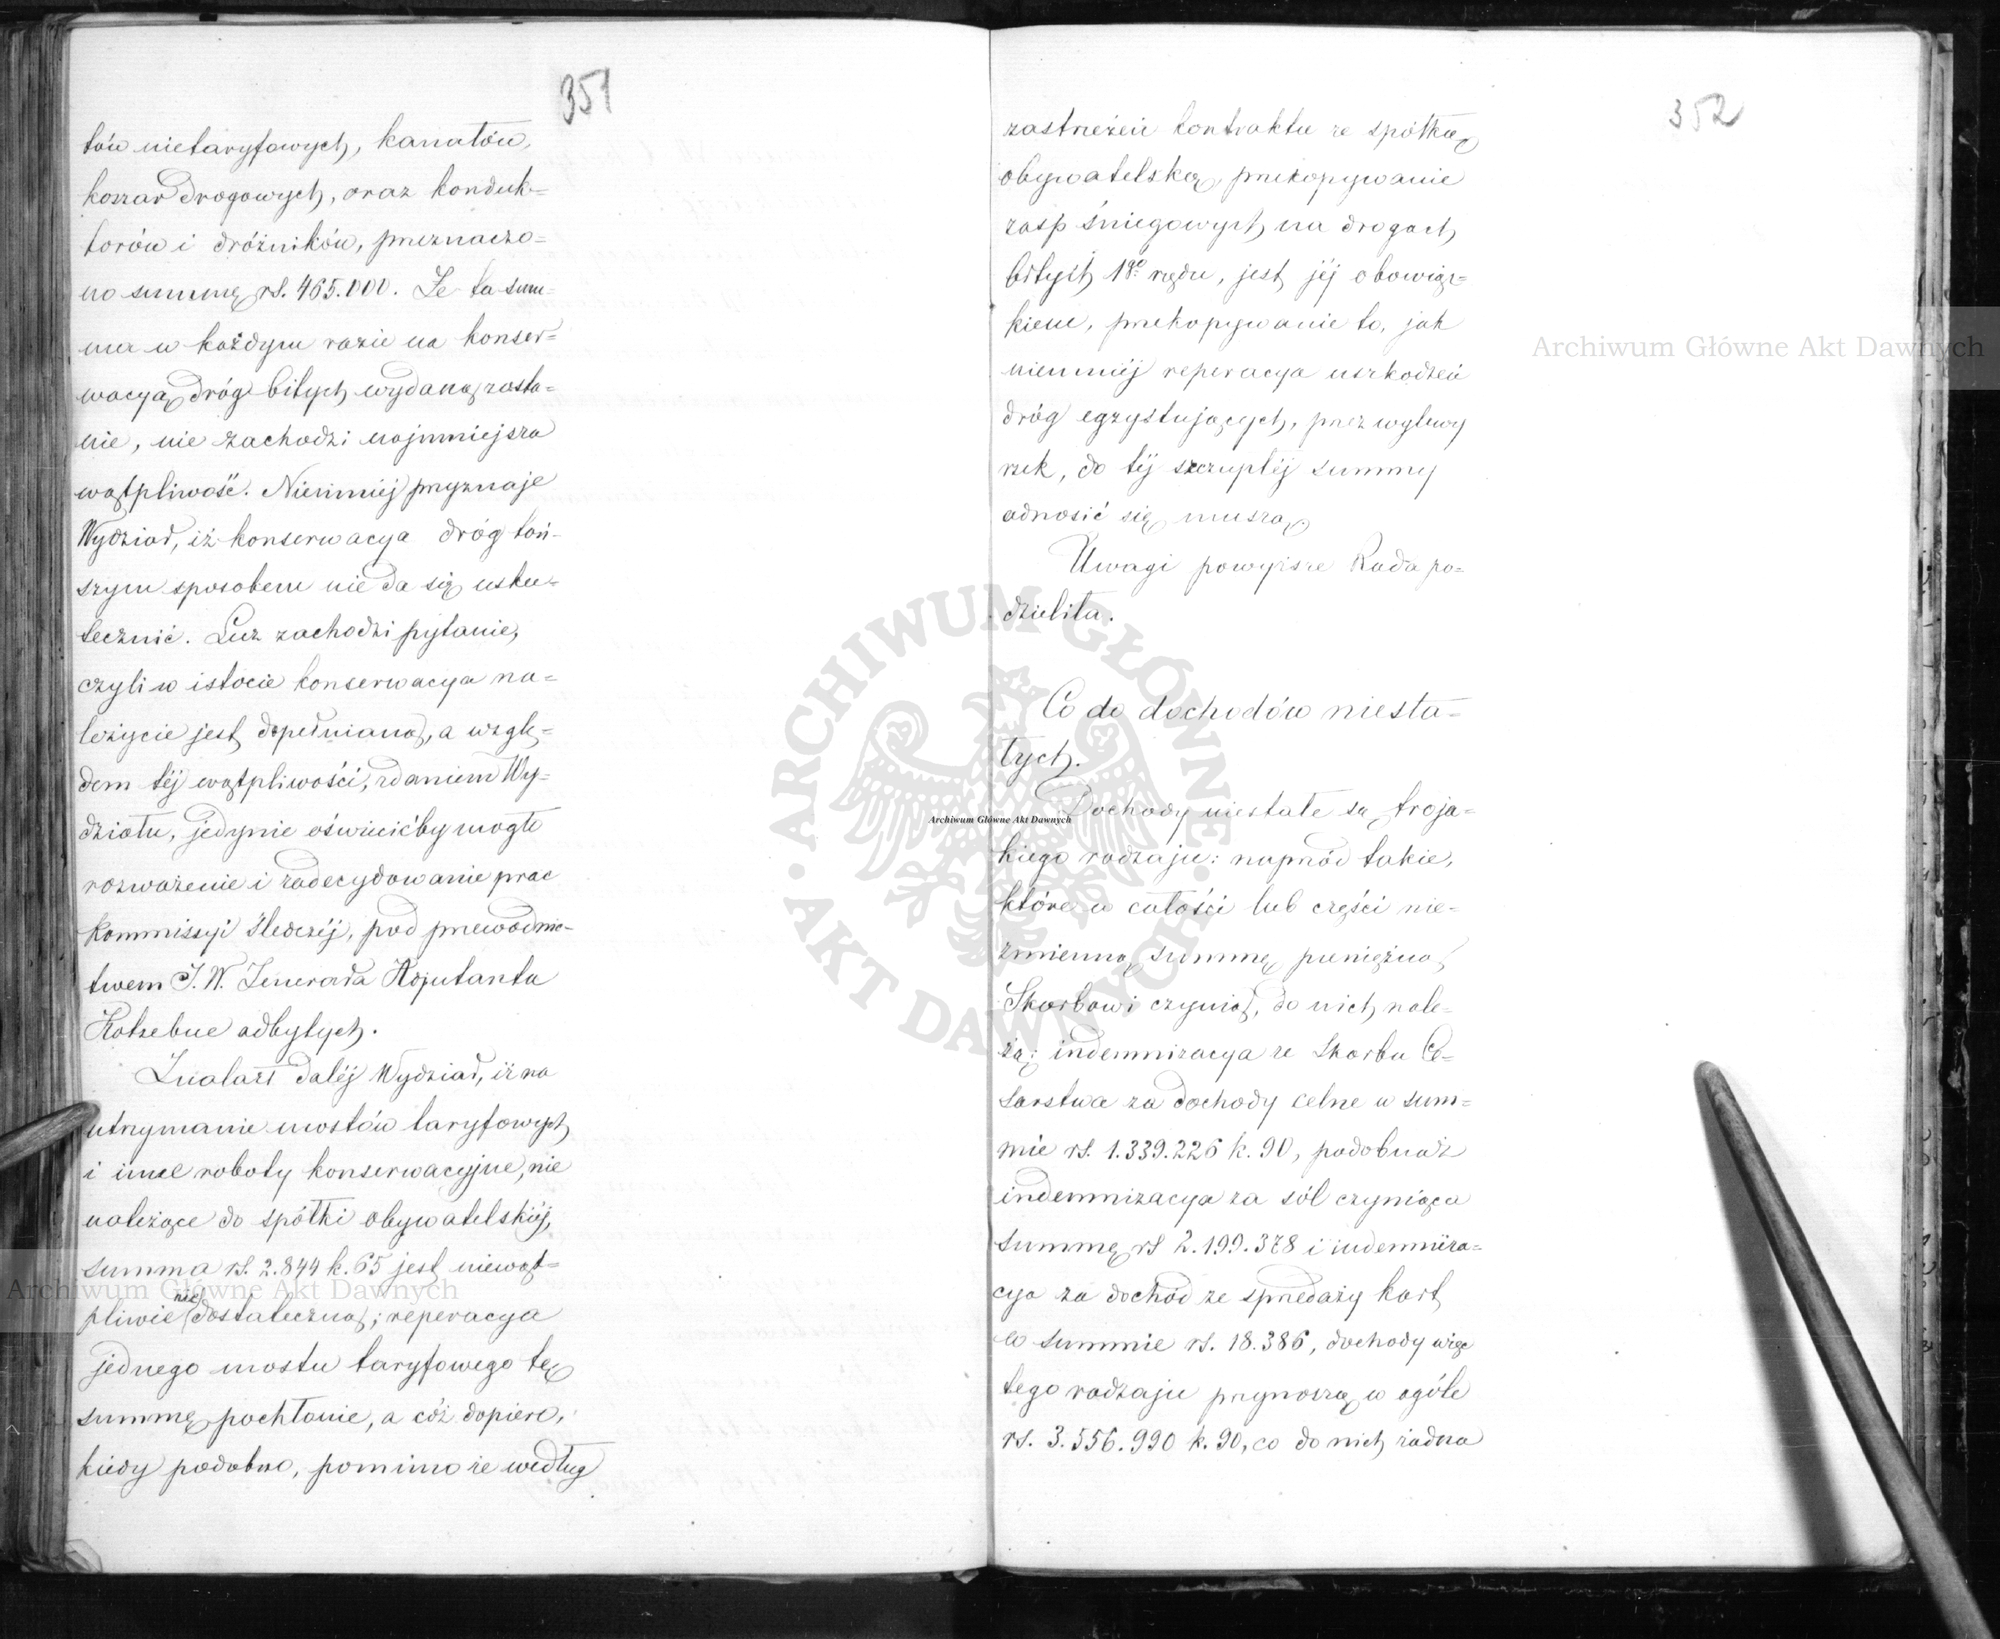 351
tów nietaryfowych, kanałów,
koszar drogowych, oraz konduk=
torów i dróżników, przeznaczo=
no summę rs. 465.000. Że ta sum=
ma w każdym razie na konser=
wacyą dróg bitych wydaną zosta=
nie, nie zachodzi najmniejsza
wątpliwość. Niemniéj przyznaje
Wydział, iż konserwacya dróg tań=
szym sposobem nie da się usku=
tecznić. Lecz zachodzi pytanie,
czyli w istocie konserwacya na=
leżycie jest dopełnianą, a wzglę=
dem téj wątpliwości, zdaniem Wy=
działu, jedynie oświecićby mogło
rozważenie i zadecydowanie prac
Kommissyi Śledczéj, pod przewodnic=
twem J. W. Jenerała Adjutanta
Kotzebue odbytych.
Znalazł daléj Wydział, iż na
utrzymanie mostów taryfowych
i inne roboty konserwacyjne, nie
należące do spółki obywatelskiéj,
summa rs. 2.844 k. 65 jest niewąt=
pliwie niedostateczną; reperacya
jednego mostu taryfowego tę
summę pochłonie, a cóż dopiero,
kiedy podobno, pomimo że według
352
zastrzeżeń kontraktu ze spółką
obywatelską, przekopywanie
zasp śniegowych na drogach
bitych 1go rzędu, jest jéj obowiąz=
kiem, przekopywanie to, jak
niemniéj reperacya uszkodzeń
dróg egzystujących, przez wylewy
rzek, do téj szczupłéj summy
odnosić się muszą.
Uwagi powyższe Rada po=
dzieliła.
Co do dochodów niesta=
łych.
Dochody niestałe są troja=
kiego rodzaju: naprzód takie,
które w całości lub części nie=
zmienną summę pieniężną
Skarbowi czynią, do nich nale=
żą: indemnizacya ze Skarbu Ce=
sarstwa za dochody celne w sum=
mie rs. 1.339.226 k. 90, podobnaż
indemnizacya za sól czyniąca
summę rs 2.199.378 i indemniza=
cya za dochód ze sprzedaży kart
w summie rs. 18.386, dochody więc
tego rodzaju przynoszą w ogóle
rs. 3.556.990 k. 90, co do nich żadna
Archiwum Główne Akt Dawnych
Archiwum Główne Akt Dawnych
Archiwum Główne Akt Dawnych
ARCHIWUM GŁÓWNE · AKT DAWNYCH ·